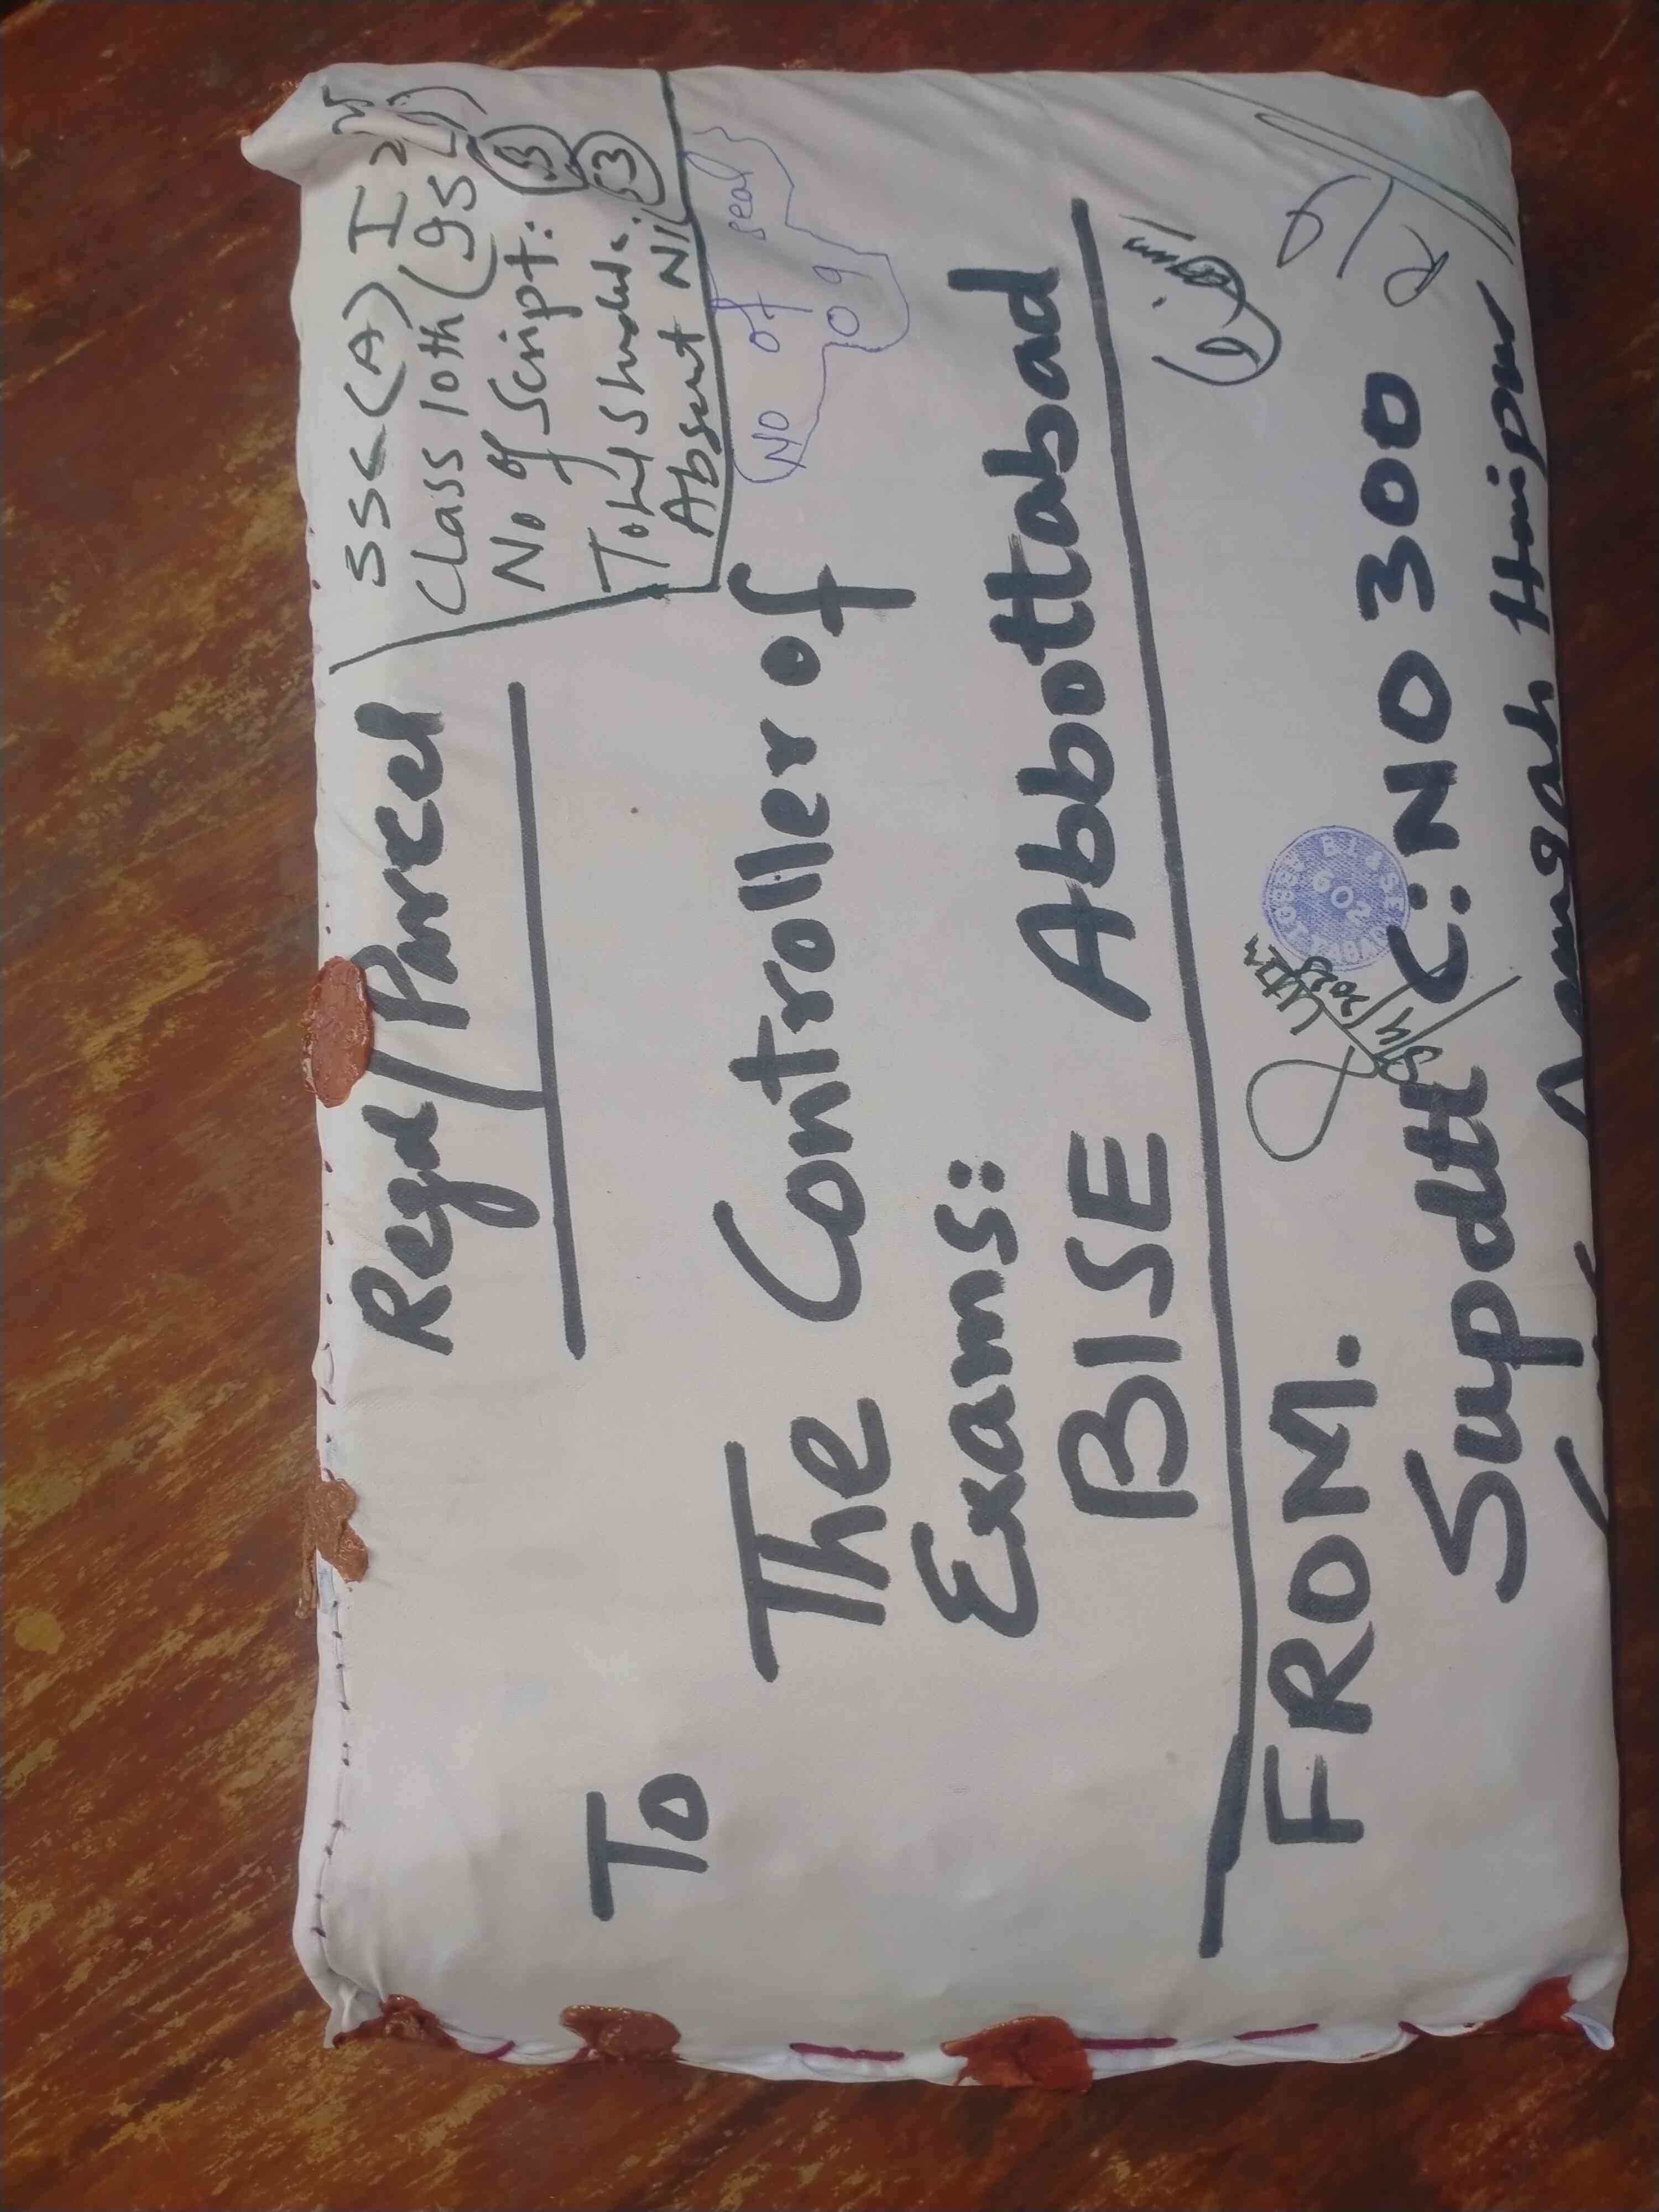 Regd/Parcel
SSC(A) I
Class 10th (
No of Script:
Total Students:
Absent Nil
No of seal
09
To
The Controller of
Exams:
BISE Abbottabad
FROM.
Supdtt C:NO 300
Haripur
602